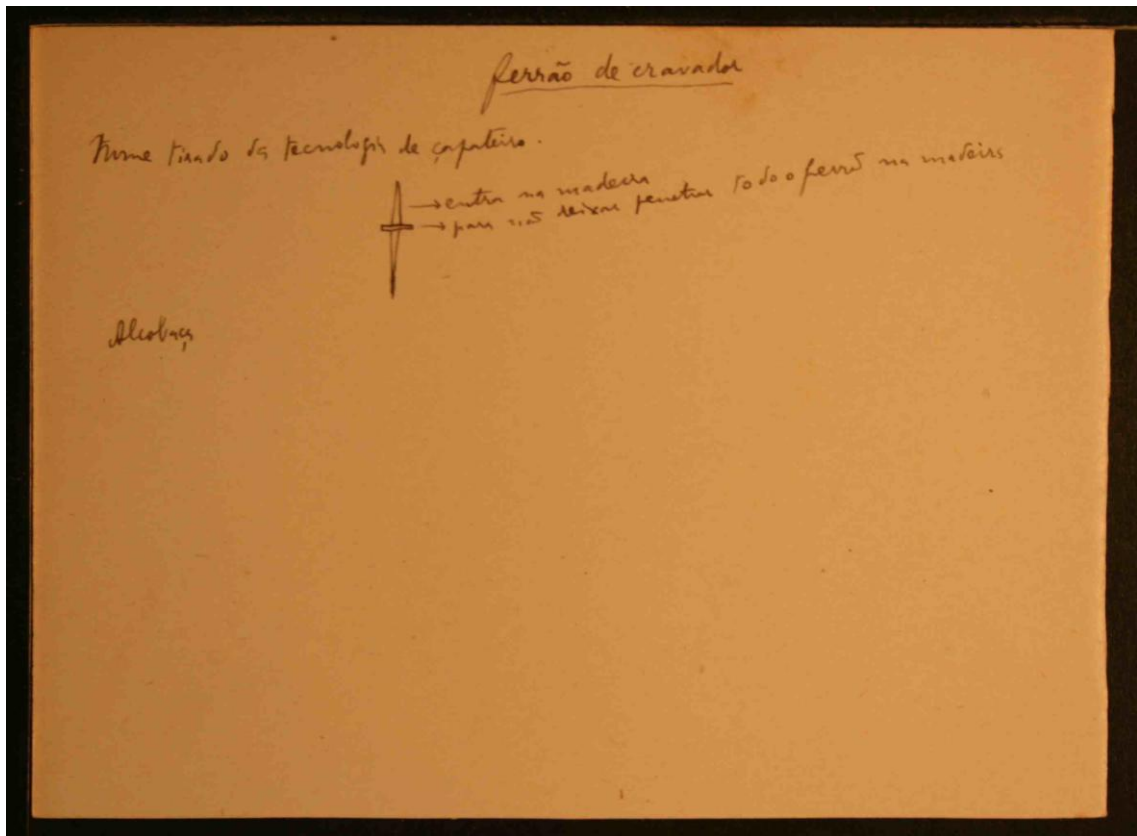 ferrão de cravador
Nome tirado da tecnologia de çapateiro.
→ entra na madeira
→ para não deixar penetrar todo o ferrão na madeira
Alcobaça